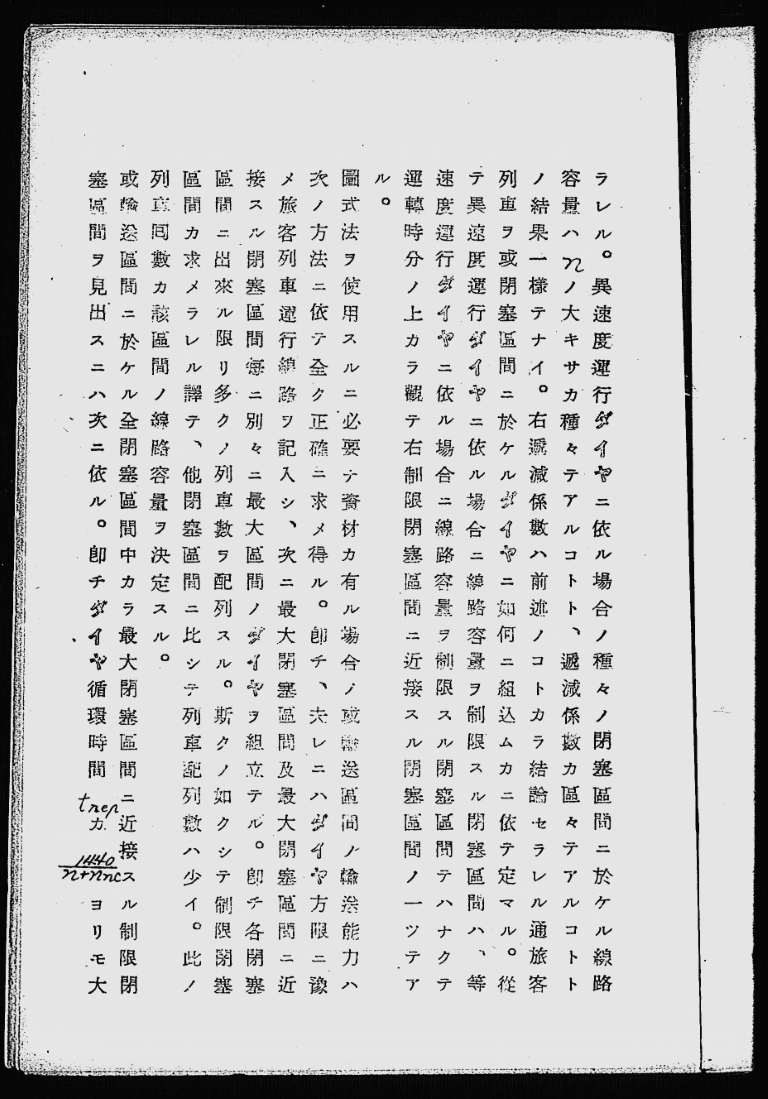 ラレル。異速度運行ダイヤニ依ル場合ノ種々ノ閉塞區間ニ於ケル線路
容量ハnノ大キサカ種々テアルコトト、遞減係數カ區々テアルコトト
ノ結果一樣テナイ。右遞減係數ハ前述ノコトカラ結論セラレル通旅客
列車ヲ或閉塞區間ニ於ケルダイヤニ如何ニ組込ムカニ依テ定マル。從
テ異速度運行ダイヤニ依ル場合ニ線路容量ヲ制限スル閉塞區間ハ、等
速度運行ダイヤニ依ル場合ニ線路容量ヲ制限スル閉塞區間テハナクテ
運轉時分ノ上カラ觀テ右制限閉塞區間ニ近接スル閉塞區間ノ一ツテア
ル。
圖式法ヲ使用スルニ必要ナ資材カ有ル場合ノ或輸送區間ノ輸送能力ハ
次ノ方法ニ依テ全ク正確ニ求メ得ル。卽チ、夫レニハダイヤ方限ニ豫
メ旅客列車運行線路ヲ記入シ、次ニ最大閉塞區間及最大閉塞區間ニ近
接スル閉塞區間每ニ別々ニ最大區間ノダイヤヲ組立テル。卽チ各閉塞
區間ニ出來ル限リ多クノ列車數ヲ配列スル。斯クノ如クシテ制限閉塞
區間カ求メラレル譯テ、他閉塞區間ニ比シテ列車配列數ハ少イ。此ノ
列車囘數カ該區間ノ線路容量ヲ決定スル。
或輸送區間ニ於ケル全閉塞區間中カラ最大閉塞區間ニ近接スル制限閉
塞區間ヲ見出スニハ次ニ依ル。卽チダイヤ循環時間 trep カ 1440/n+nnc ヨリモ大